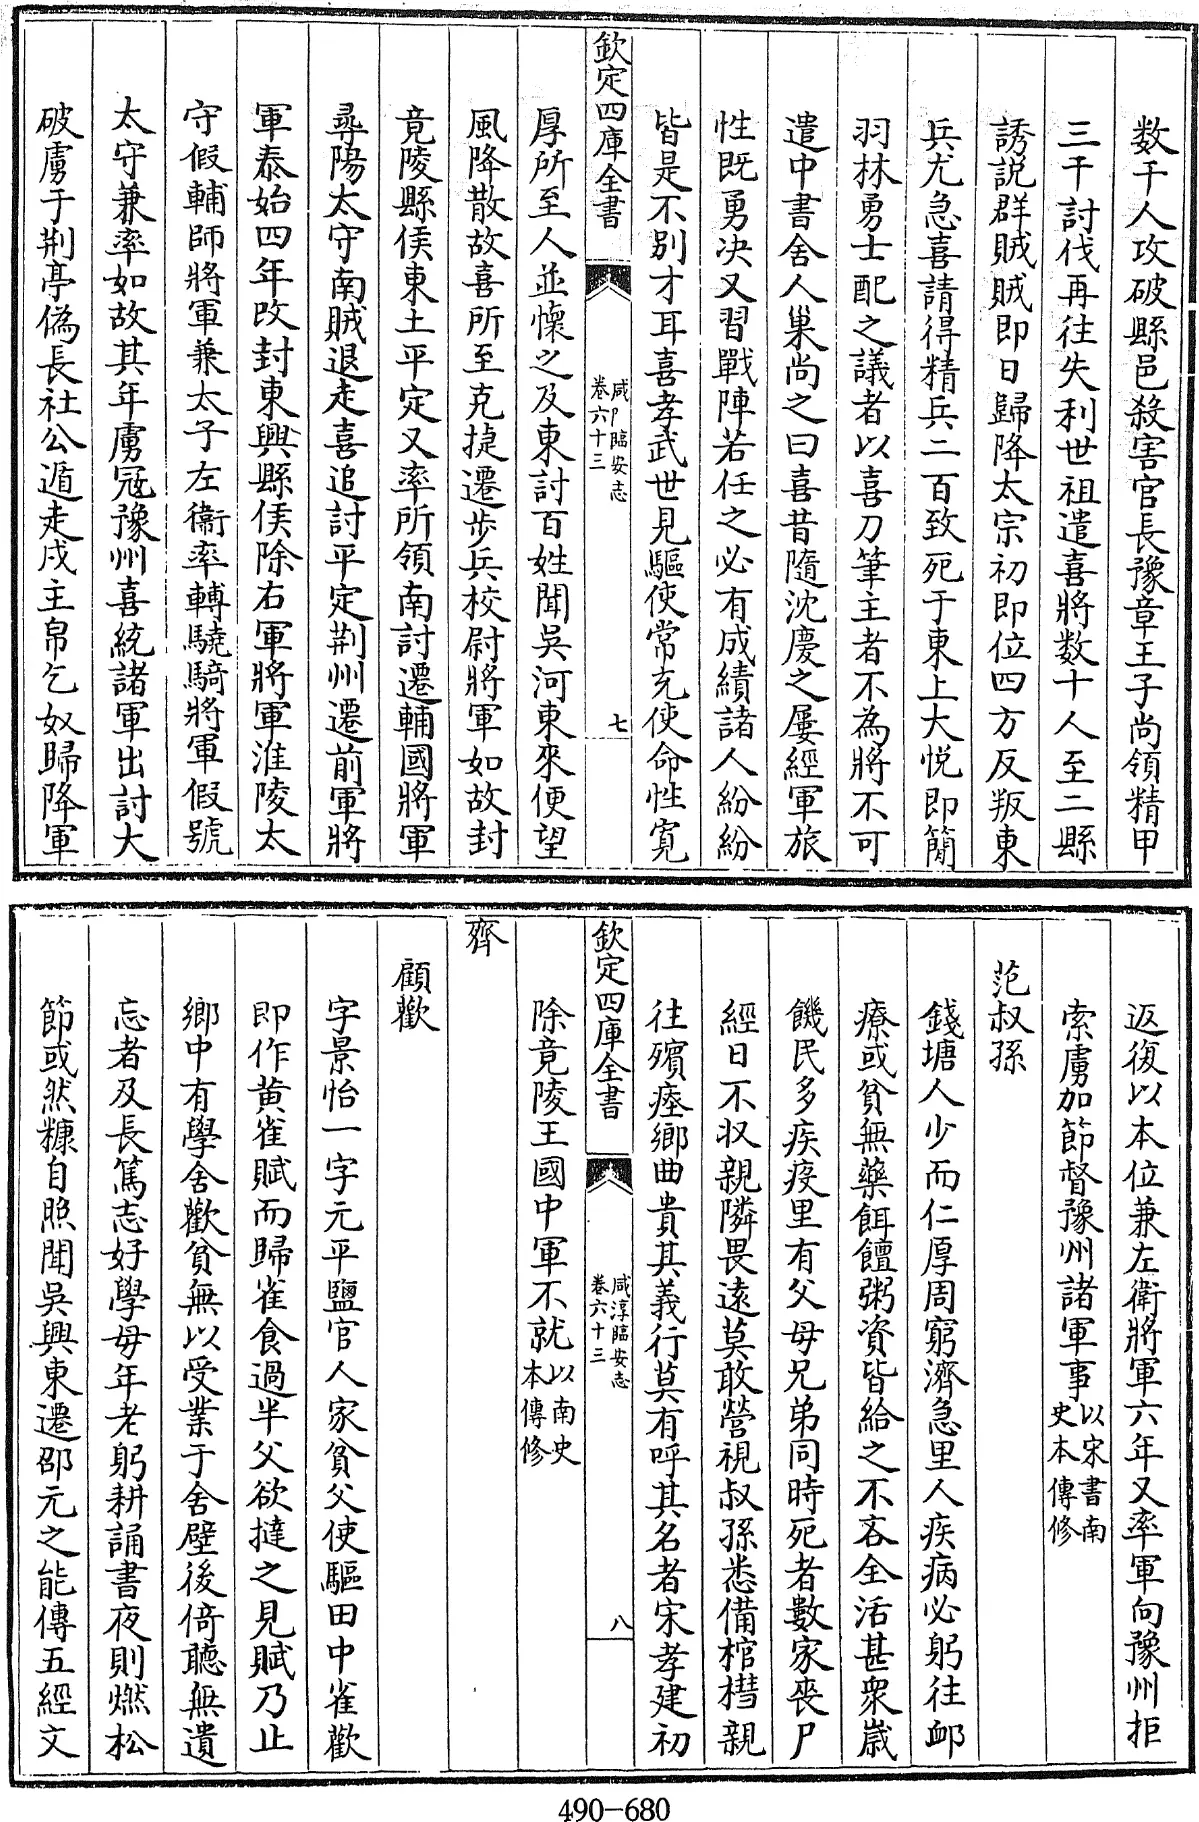 数千人攻破縣邑殺害官長豫章王子尚領精甲
三千討伐再往失利世祖遣喜將数十人至二縣
誘説群賊賊即日歸降太宗初即位四方反叛東
兵尤急喜請得精兵二百致死于東上大悦即簡
羽林勇士配之議者以喜刀筆主者不為將不可
遣中書舍人巢尚之曰喜昔隨沈慶之屢經軍旅
性既勇决又習戰陣若任之必有成績諸人紛紛
皆是不别才耳喜孝武世見驅使常充使命性寛
欽定四庫全書
咸淳臨安志
卷六十三
七
厚所至人並懷之及東討百姓聞吳河東來便望
風降散故喜所至克捷遷步兵校尉將軍如故封
竟陵縣侯東土平定又率所領南討遷輔國將軍
尋陽太守南賊退走喜追討平定荆州遷前軍將
軍泰始四年改封東興縣侯除右軍將軍淮陵太
守假輔師將軍兼太子左衞率轉驍騎將軍假號
太守兼率如故其年虜冦豫州喜統諸軍出討大
破虜于荆亭偽長社公遁走戍主帛乞奴歸降軍
返復以本位兼左衛將軍六年又率軍向豫州拒
索虜加節督豫州諸軍事以宋書南
史本傳修
范叔孫
錢塘人少而仁厚周窮濟急里人疾病必躬往䘏
療或貧無藥餌饘粥資皆給之不吝全活甚衆嵗
饑民多疾疫里有父母兄弟同時死者數家喪尸
經日不収親隣畏遠莫敢營視叔孫悉備棺槥親
往殯瘞鄉曲貴其義行莫有呼其名者宋孝建初
欽定四庫全書
咸淳臨安志
卷六十三
八
除竟陵王國中軍不就以南史
本傳修
齊
顧歡
字景怡一字元平鹽官人家貧父使驅田中雀歡
即作黄雀賦而歸雀食過半父欲撻之見賦乃止
鄉中有學舍歡貧無以受業于舍壁後倚聽無遺
忘者及長篤志好學母年老躬耕誦書夜則燃松
節或然糠自照聞吳興東遷邵元之能傳五經文
490-680